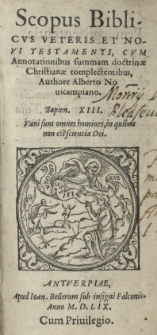 Scopus Bibli-
CVS VETERIS ET NO-
VI TESTAMENTI, CVM
Annotationibus summam doctrinæ
Christianæ complectentibus,
Authore Alberto No
uicampiano.
Sapien. XIII.
Vani sunt omnes homines, in quibus
non est scientia Dei.
ANTVERPIAE,
Apud Ioan. Bellerum sub insigni Falconis.
Anno M. D. LIX.
Cum Priuilegio.